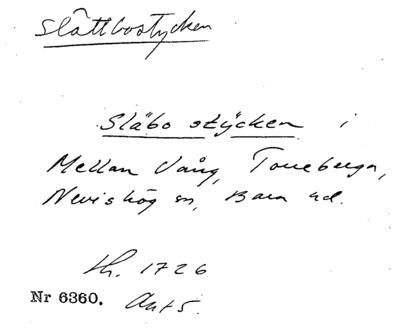 Slättbostycken
Släbo stÿcken i
Mellan Vång, Torreberga,
Nevishög sn, Bara hd.
Lh. 1726
Nr 6360. Akt 5.